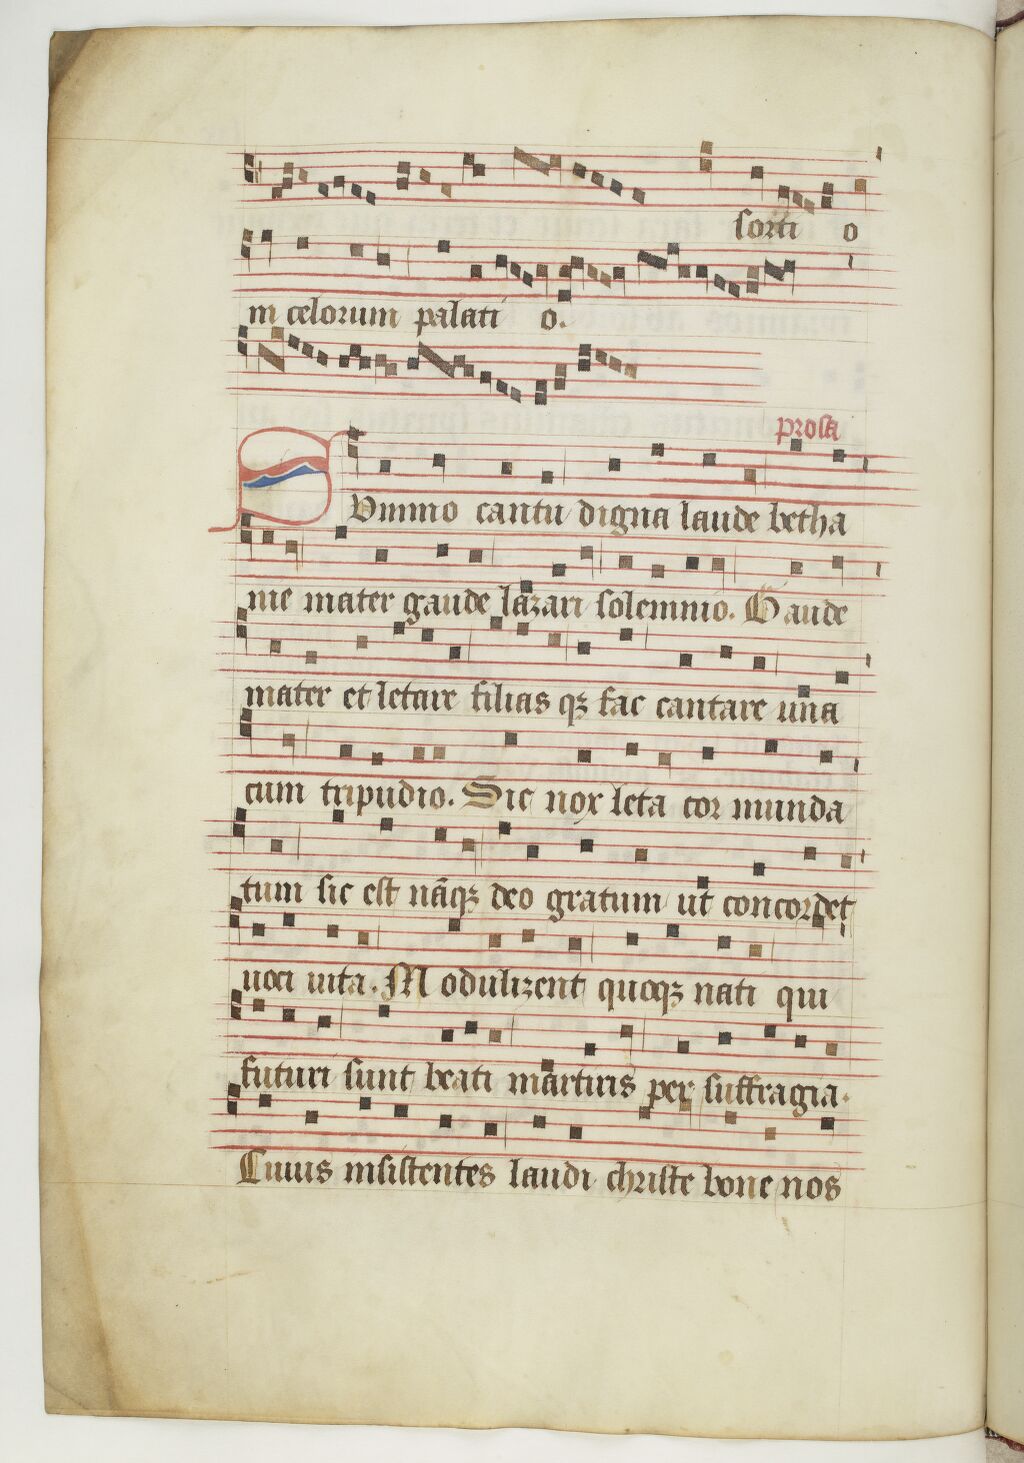 sorti o
in celorum palati o.
prosa
Summo cantu digna laude betha
nie mater gaude lazari solemnio. Gaude
mater et letare filias qȝ fac cantare una
cum tripudio. Sic nox leta cor munda
tum sic est nāqȝ deo gratum ut concordet
uoci uita. Modulizent quoqȝ nati qui
futuri sunt beati martiris per suffragia.
Cuius insistentes laudi christe bone nos